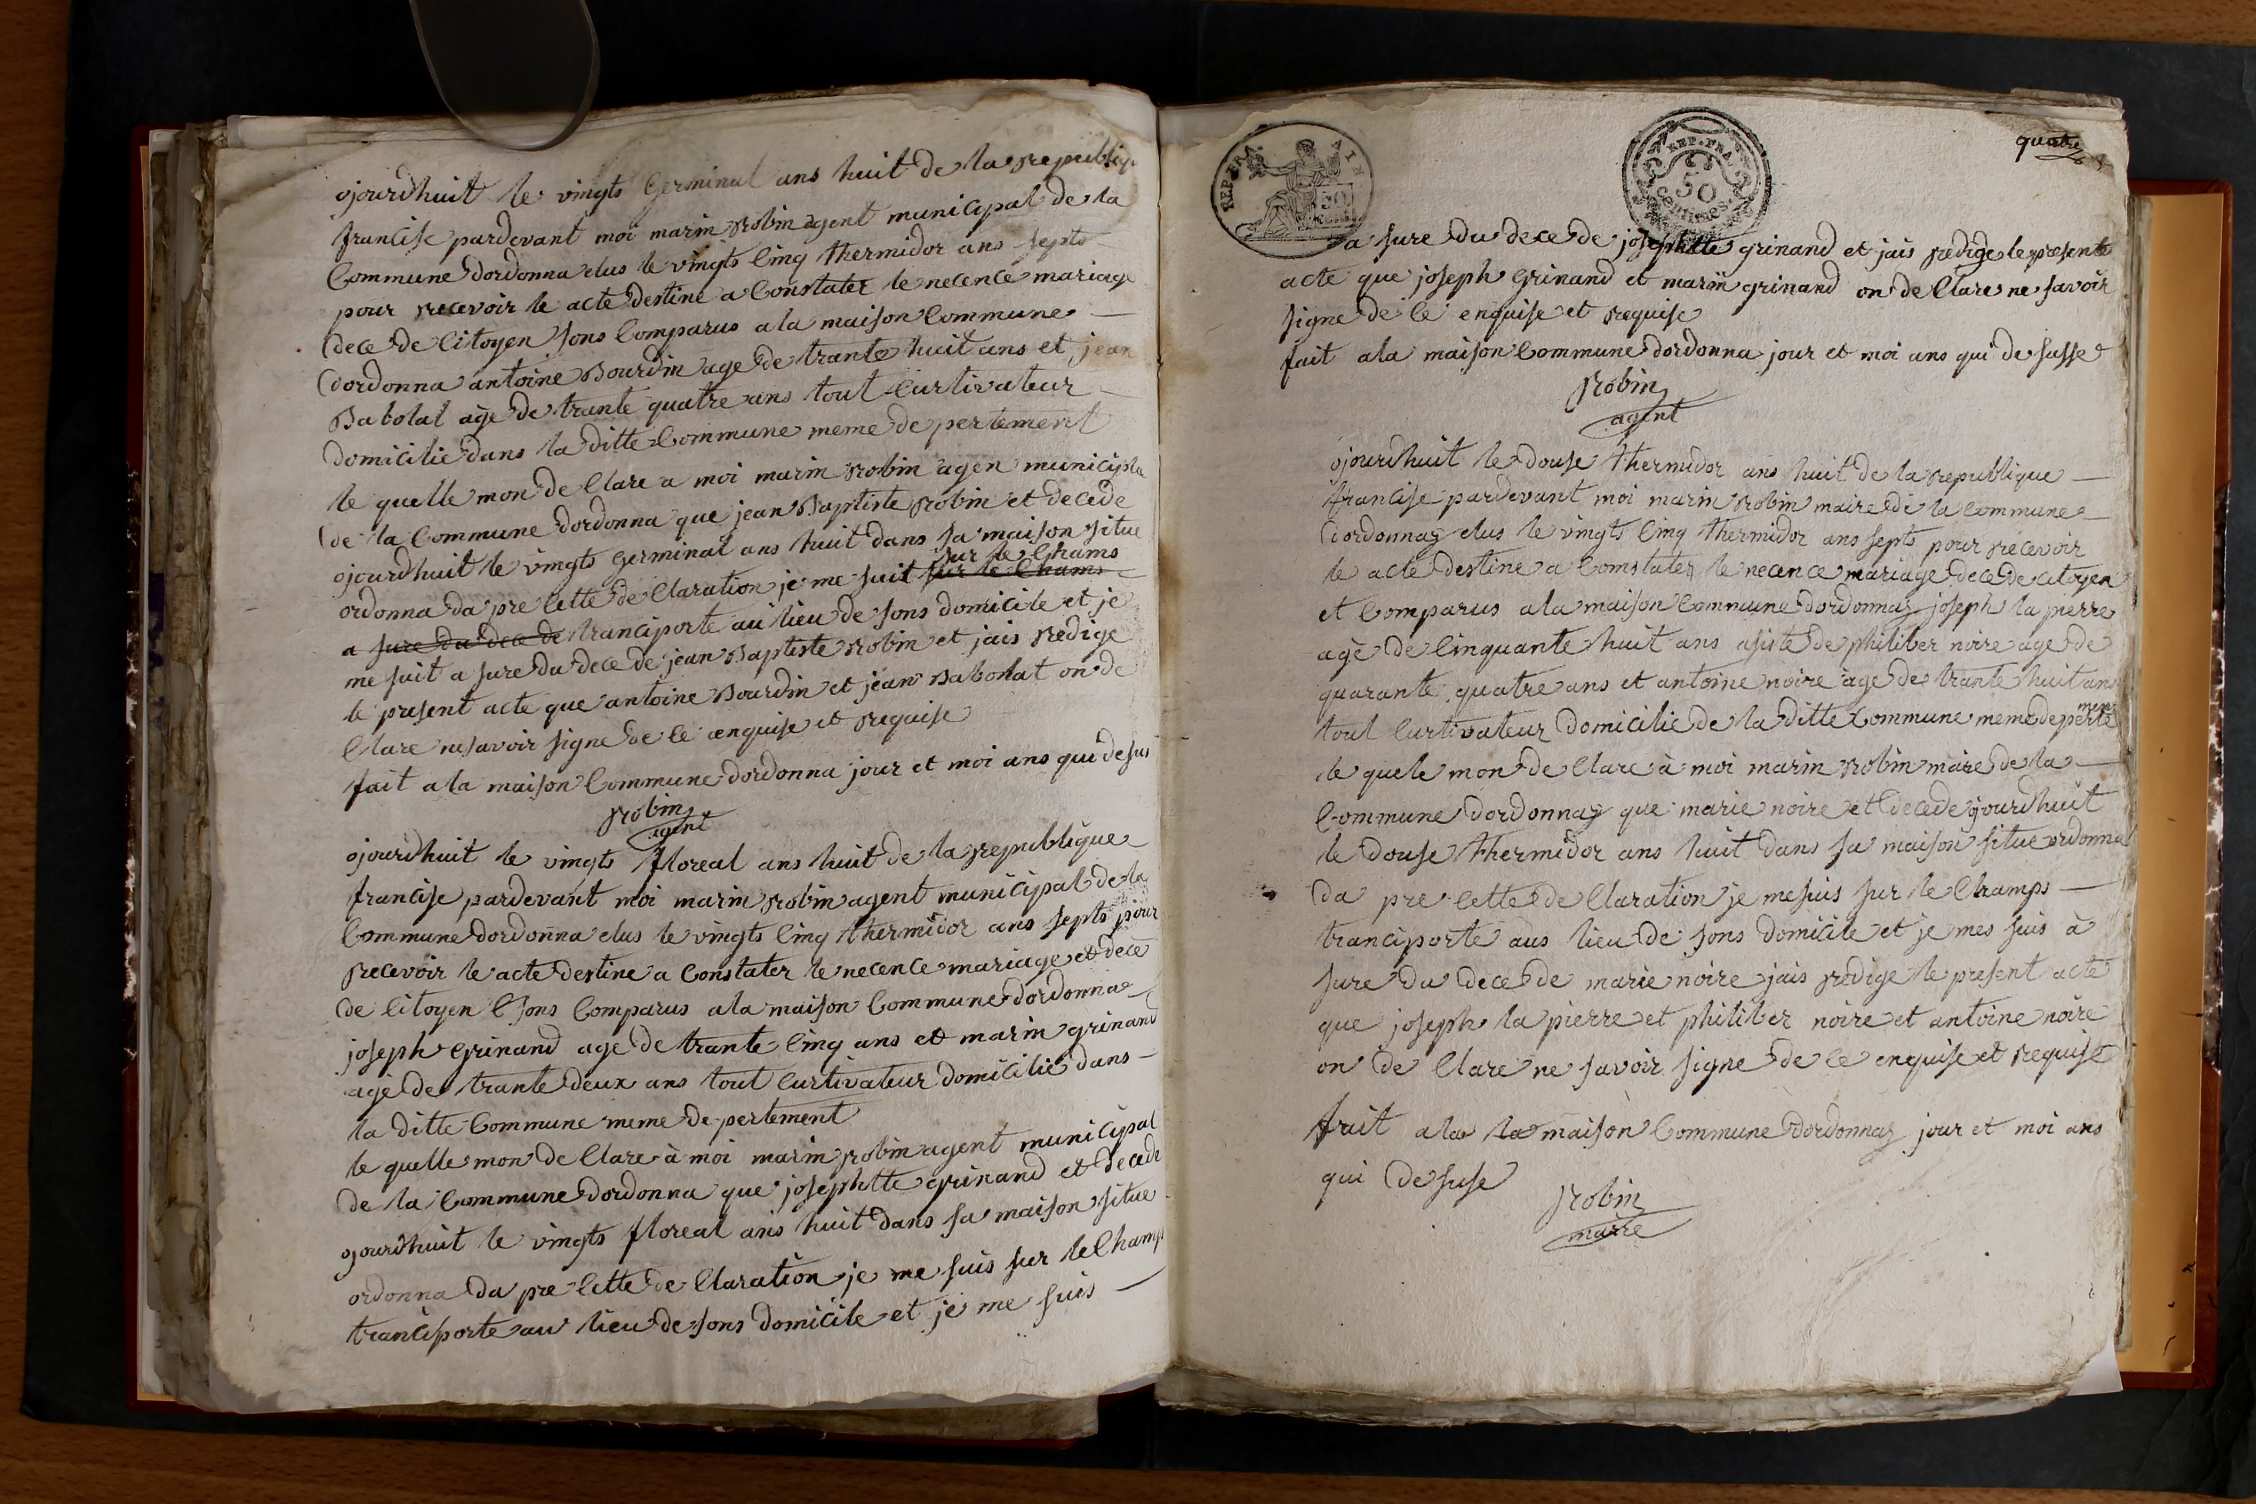 ojourdhuit le vingts Germinal ans huit de la republiq
francise pardevant moi marin robin agent municipal de la
Commune dordonna elus le vingts cinq thermidor ans septs
pour recevoir le acte destine a Constater le necence mariage
dece de Citoyen sons Comparus a la maison Commune
dordonna antoine Bourdin age de trante huit ans et jean
Babolat age de trante quatre ans tout curtivateur
domicilie dans la ditte Commune meme depertement
le quelle mon de Clare a moi marin robin agen municipla
de la Commune dordonna que jean Baptiste robin et decede
ojourdhuit le vingts germinal ans huit dans sa maison situe
sur le Chams
ordonna da pre cette de Claration je me suit sur le Chams
a sure du dece de tranciporte au lieu de sons domicile et je
me suit a sure du dece de jean Baptiste robin et jais redige
le present acte que antoine Bourdin et jean Babolat on de
Clare ne savoir signe de ce enquise et requise
fait a la maison Commune dordonna jour et moi ans qui desus
robin
agent
ojourdhuit le vingts floreal ans huit de la republique
francise pardevant moi marin robin agent municipal de la
Commune dordonna elus le vingts cinq thermidor ans septs pour
recevoir le acte destine a Constater le necence mariage et dece
de Citoyen sons Comparus a la maison Commune dordonna
joseph grinand age de trante cinq ans et marin grinand
age de trante deux ans tout curtivateur domicilie dans
la ditte Commune meme depertement
le quelle mon de Clare à moi marin robin agent municipal
de la Commune dordonna que josephtte grinand et decede
ojourdhuit le vingts floreal ans huit dans sa maison situe
ordonna da pre cette de Claration je me suis sur le Champs
tranciporte au lieu de sons domicile et je me suis
quatre
REP. FRA.
50
REP. FRA.
50
Centimes
a sure du dece de josephtte grinand et jais redige le presente
acte que joseph grinand et marin grinand on de Clare ne savoir
signe de ce enquise et requise
fait a la maison Commune dordonna jour et moi ans qui de susse
robin
agent
ojourdhuit le douse thermidor ans huit de la republique
francise pardevant moi marin robin maire de la commune
dordonnaz elus le vingts cinq thermidor ans septs pour recevoir
le acte destine a Comstater le necence mariage dece de citoyen
et Comparus a la maison Commune dordonnaz joseph la pierre
age de Cinquante huit ans asiste de philiber noire age de
quarante quatre ans et antoine noire age de trante huit ans
ment
tout curtivateur domicilie de la ditte Commune meme deperte
le quele mon de Clare à moi marin robin maire de la
Commune dordonnaz que marie noire et decede ojourdhuit
le douse thermidor ans huit dans sa maison situe ordonna
da pre cette de Claration je me suis sur le Champs
tranciporte aus lieu de sons domicile et je mes suis à
sure du dece de marie noire jais redige le present acte
que joseph la pierre et philiber noire et antoine noire
on de Clare ne savoir signe de ce enquise et requise
fait a la la maison Commune dordonnaz jour et moi ans
qui de suse
robin
maire